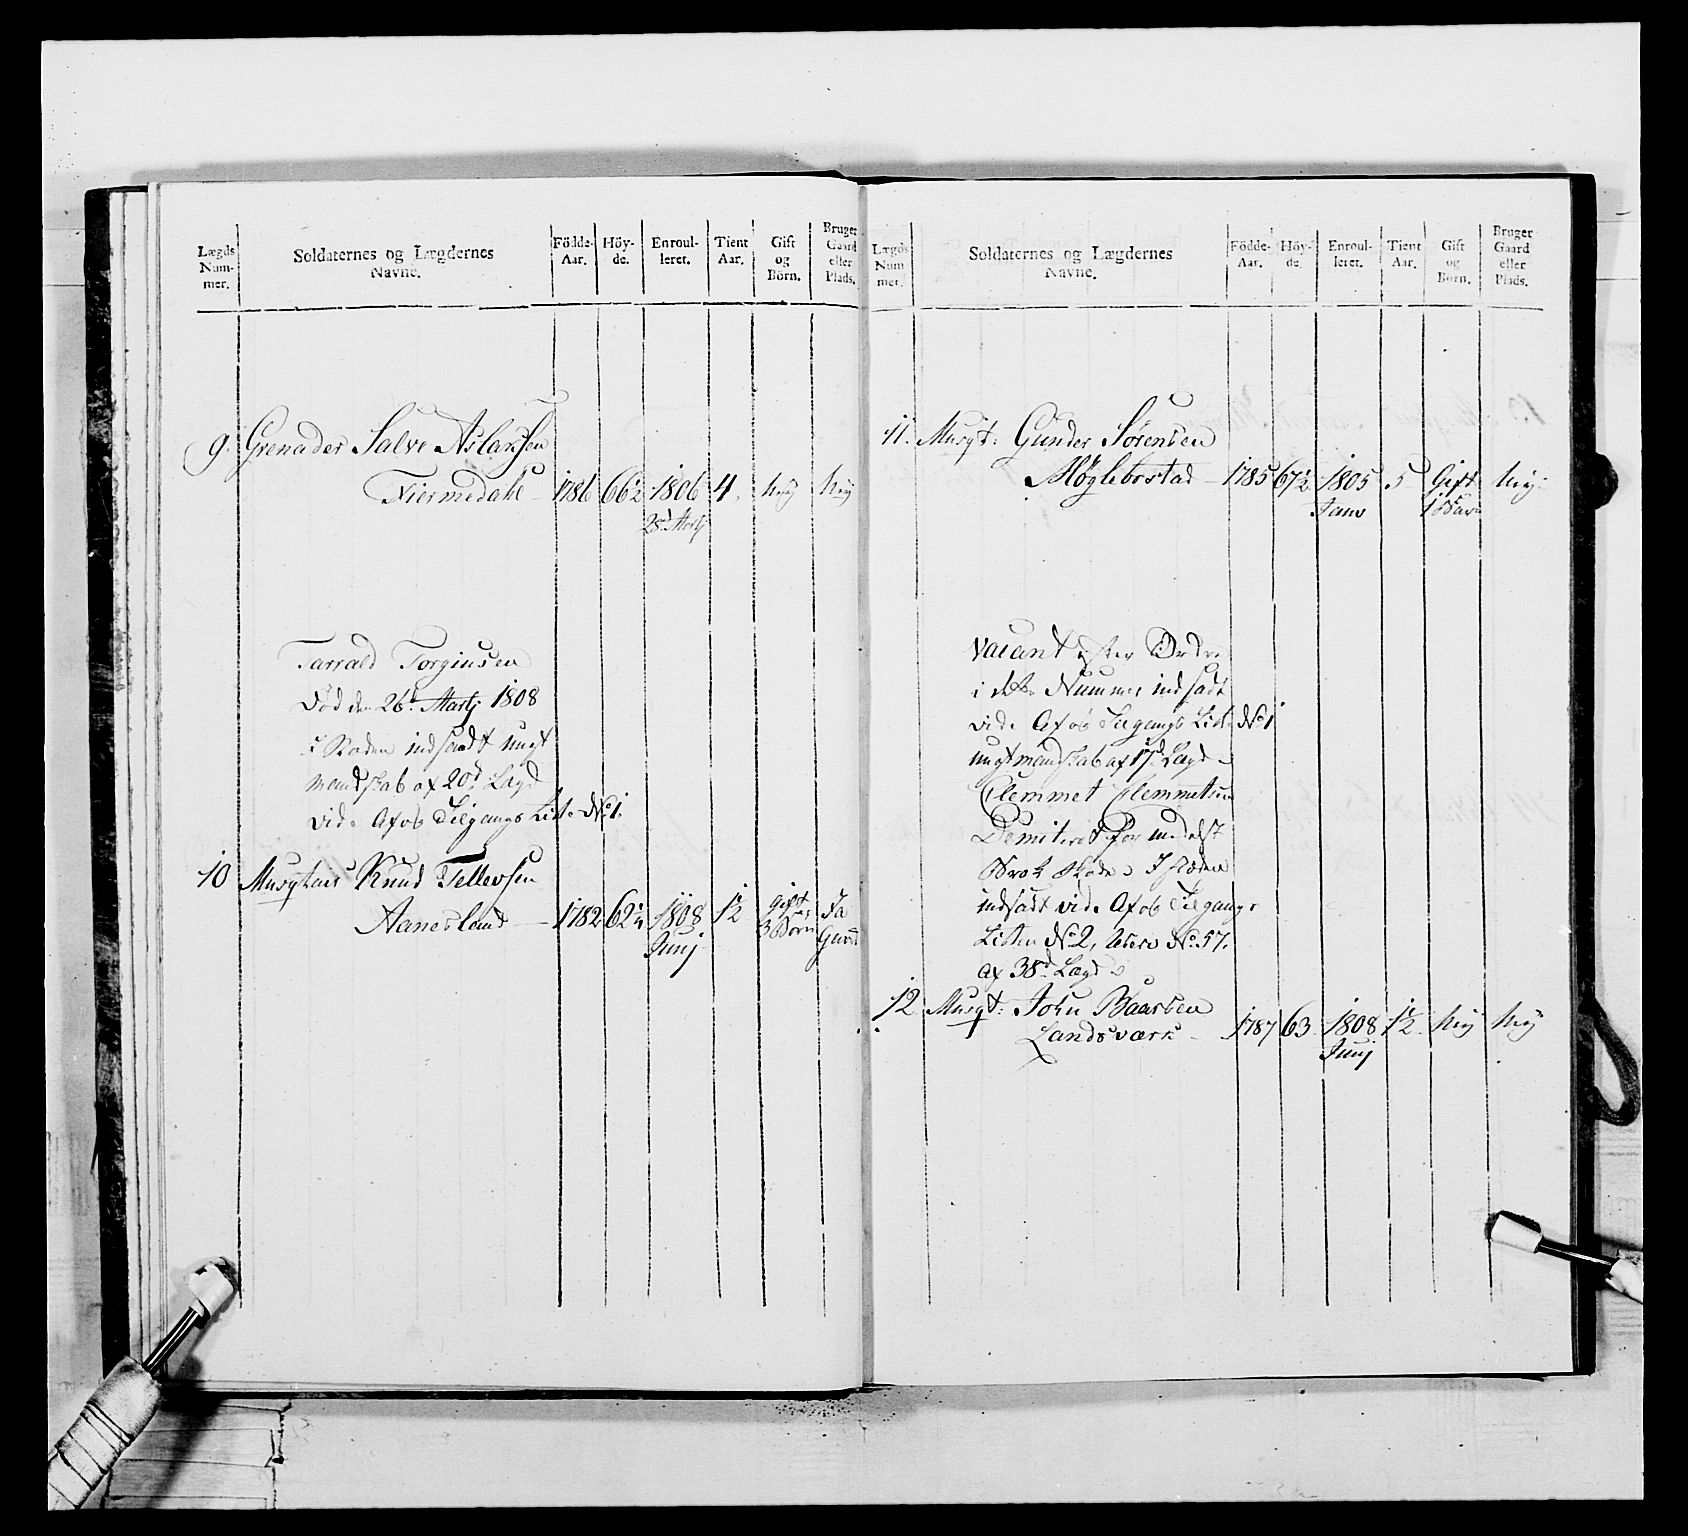 Lægds Num- mer.
Soldaternes og Lægdernes Navne.
Födde- Aar.
Höy- de.
Enroul- leret.
Tient Aar.
Gift og Börn.
Bruger Gaard eller Plads.
9. Grenader Salve Aslaksen
Niermedahl - 1786 66½ 1806 4. Nej Nej
28d Martj
Tarrald Torginsen
Död den 26d Martj 1808
i Staden indsadt ungt
mandskab af 20d Lægd
vide Afob Tilgangs Liste No 1.
10 Musqtair Knud Tellevsen
Aanesland - 1782 62¼ 1808 1½ gift 3 Börn Ja Gaard
Junj
Lægds Num- mer.
Soldaternes og Lægdernes Navne.
Födde- Aar.
Höy- de.
Enroul- leret.
Tient Aar.
Gift og Börn.
Bruger Gaard eller Plads.
11. Musqt: Gunder Sörensen
Møglebostad - 1785 67½ 1805 5 Gift Nej
Janv 1 Barn
Vacant efter Ordre
i dette Nummer indsadt
vide Afob Tilgangs Liste No 1
ungt mandskab af 17d Lægd
Clemmet Clemmetsen
Demiteret formedelst
Brok Skade I Stæden
indsadt vide Afob Tilgangs
Listen No 2, No 57.
af 38d Lægd
12 Musqt: John Baarsen
Landsværk - 1787 63 1808 1½ Nej Nej
Junj